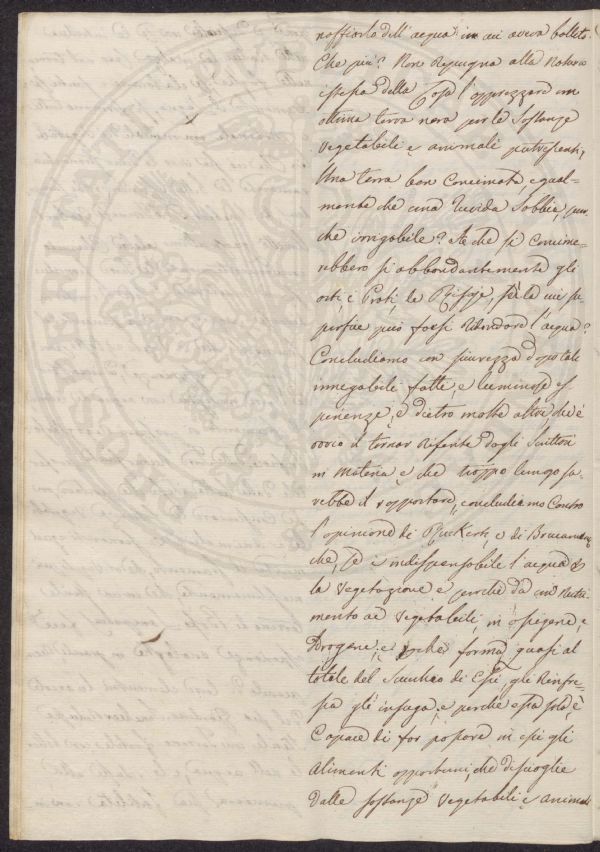 naffiarla dell'acqua in cui aveva bollito.
Che più? Non Repugna alla Natura
istessa della Cosa l'apprezzare un
ottima terra nera per le Sostanze
vegetabili, e animali putrescenti,
Una terra ben Concimata, egual=
mente che una Ruvida Sabbia, pur
che irrigabile? A che si Concime=
rebbero sì abbondantemente gli
orti, i Prati, le Risaje, se le cui su
perfice può farsi Ridondare l'acqua?
Concludiamo con sicurezza dopo tale
innegabili fatti, e luminose es
perienze, e dietro molte altre, che è
ovvio il trovar Riferite dagli Scittori
in Materia, e che troppo lungo sa=
rebbe il rapportare, concludiamo Contro
l'opinione di e di
che, se è indispensabile l'acqua
la vegetazione è perchè dà un Nutri=
mento ai vegetabili, in ossigene, e
Drogene, e perchè forma quasi il
totale del Succhio di Essi, gli Rinfre=
sca gli ; e perchè essa sola è
Capace di far passare in essi gli
Alimenti opportuni, che discioglie
dalle sostanze vegetabili, e animali